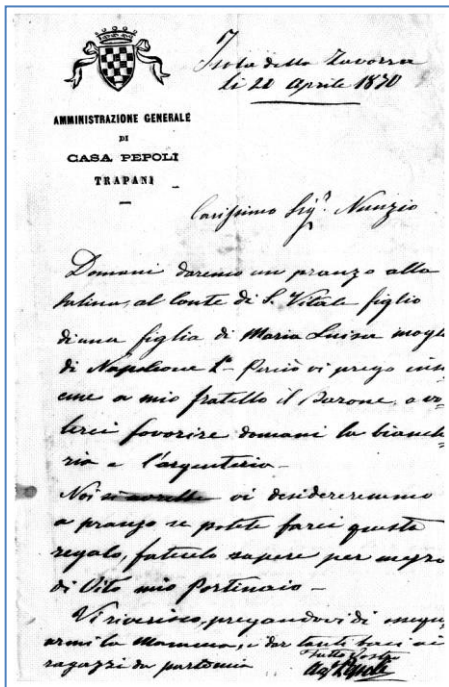 Isola della Zavorra
li 20 Aprile 1870
AMMINISTRAZIONE GENERALE
DI
CASA PEPOLI
TRAPANI
Carissimo Sigr. Nunzio
Domani daremo un pranzo alla
Salina, al Conte di S. Vitale figlio
di una figlia di Maria Luisa mogl
di Napoleone 1o- Perciò vi prego insi
eme a mio fratello il Barone, a vo-
lerci favorire domani la bianche-
ria e l'argenteria-
Noi vi desidereremmo
a pranzo se potete farci questo
regalo, fatecelo sapere per mezzo
di Vito mio Portinaio-
Vi riverisco, pregandovi di ossequi
armi la Mamma, e dar tanti baci ai
ragazzi da parte mia
Tutto Vostro
Ag. Pepoli